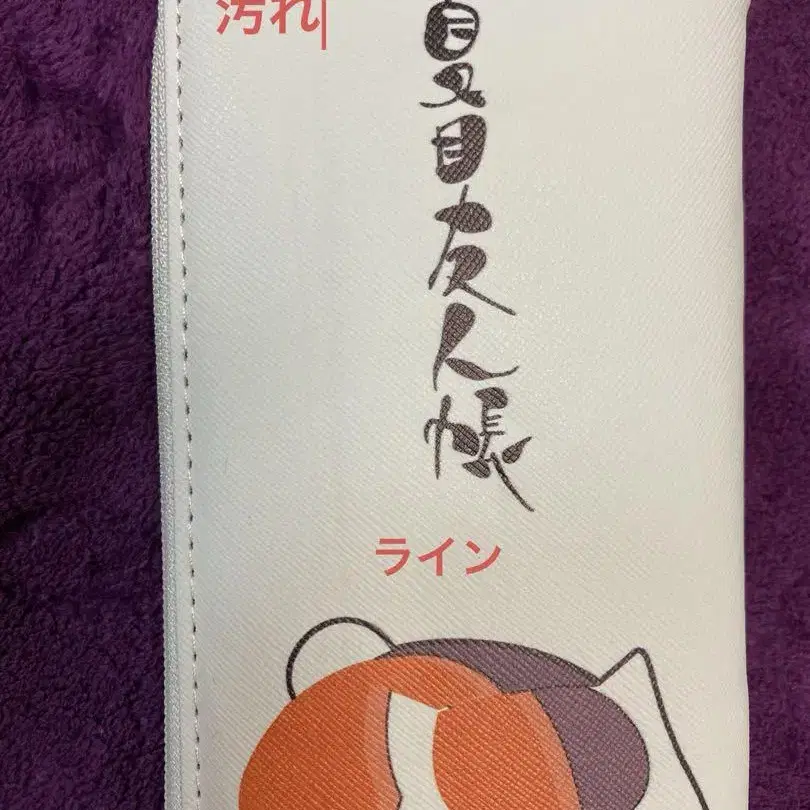 汚れ
夏目友人帳
ライン